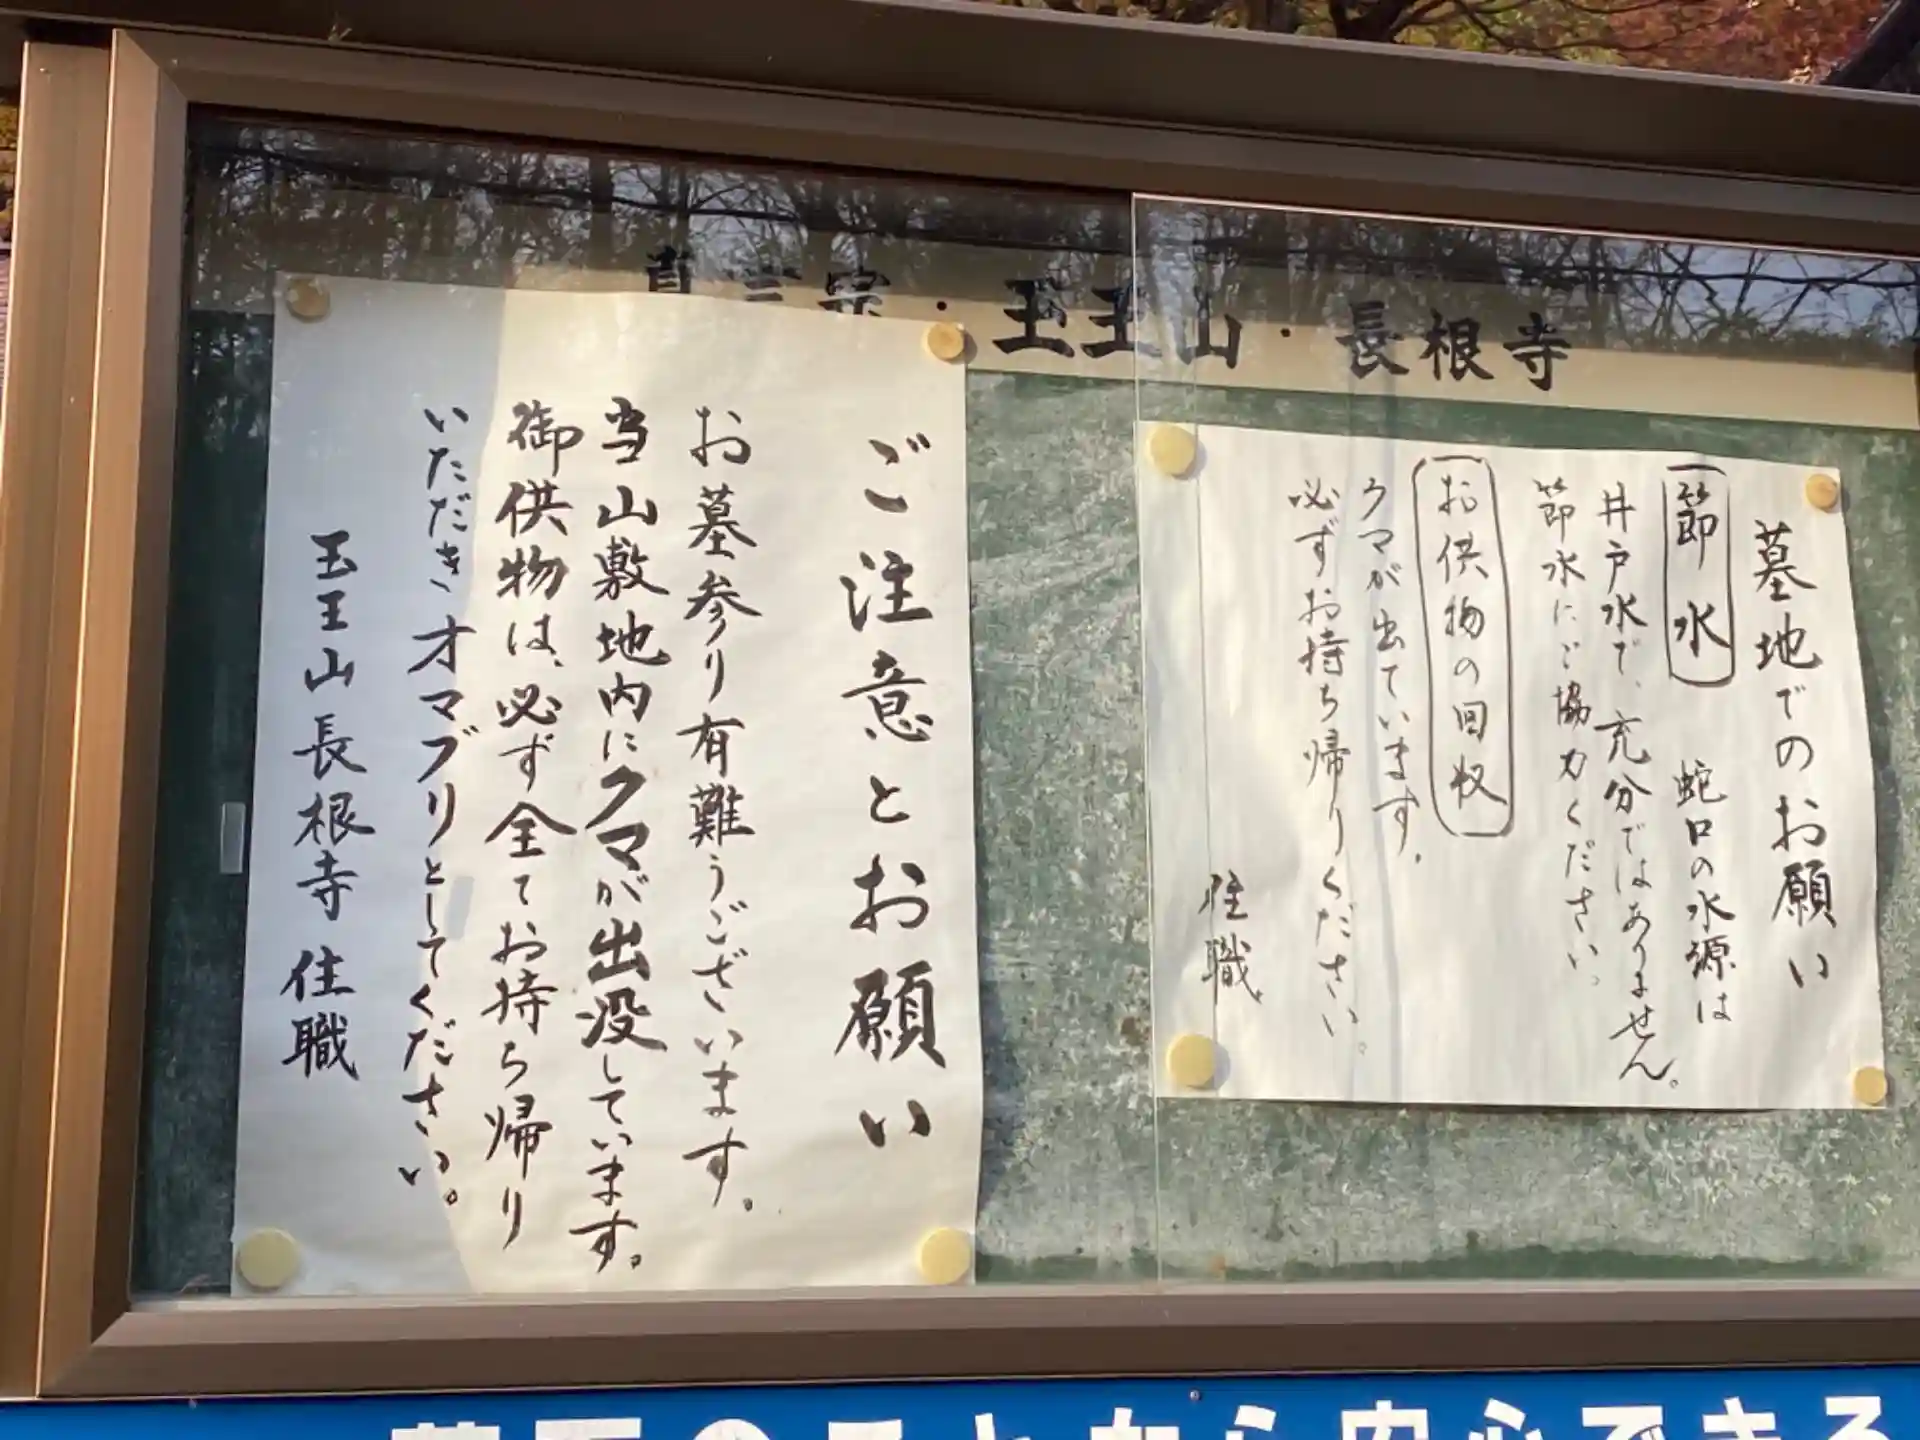 真言宗・玉王山・長根寺
墓地でのお願い
節水 蛇口の水源は
井戸水で、充分ではありません。
節水にご協力ください。
お供物の回収
クマが出ています。
必ずお持ち帰りください。
住職
ご注意とお願い
お墓参り有難うございます。
当山敷地内にクマが出没しています。
御供物は、必ず全てお持ち帰り
いただきオマブリとしてください。
玉王山長根寺 住職